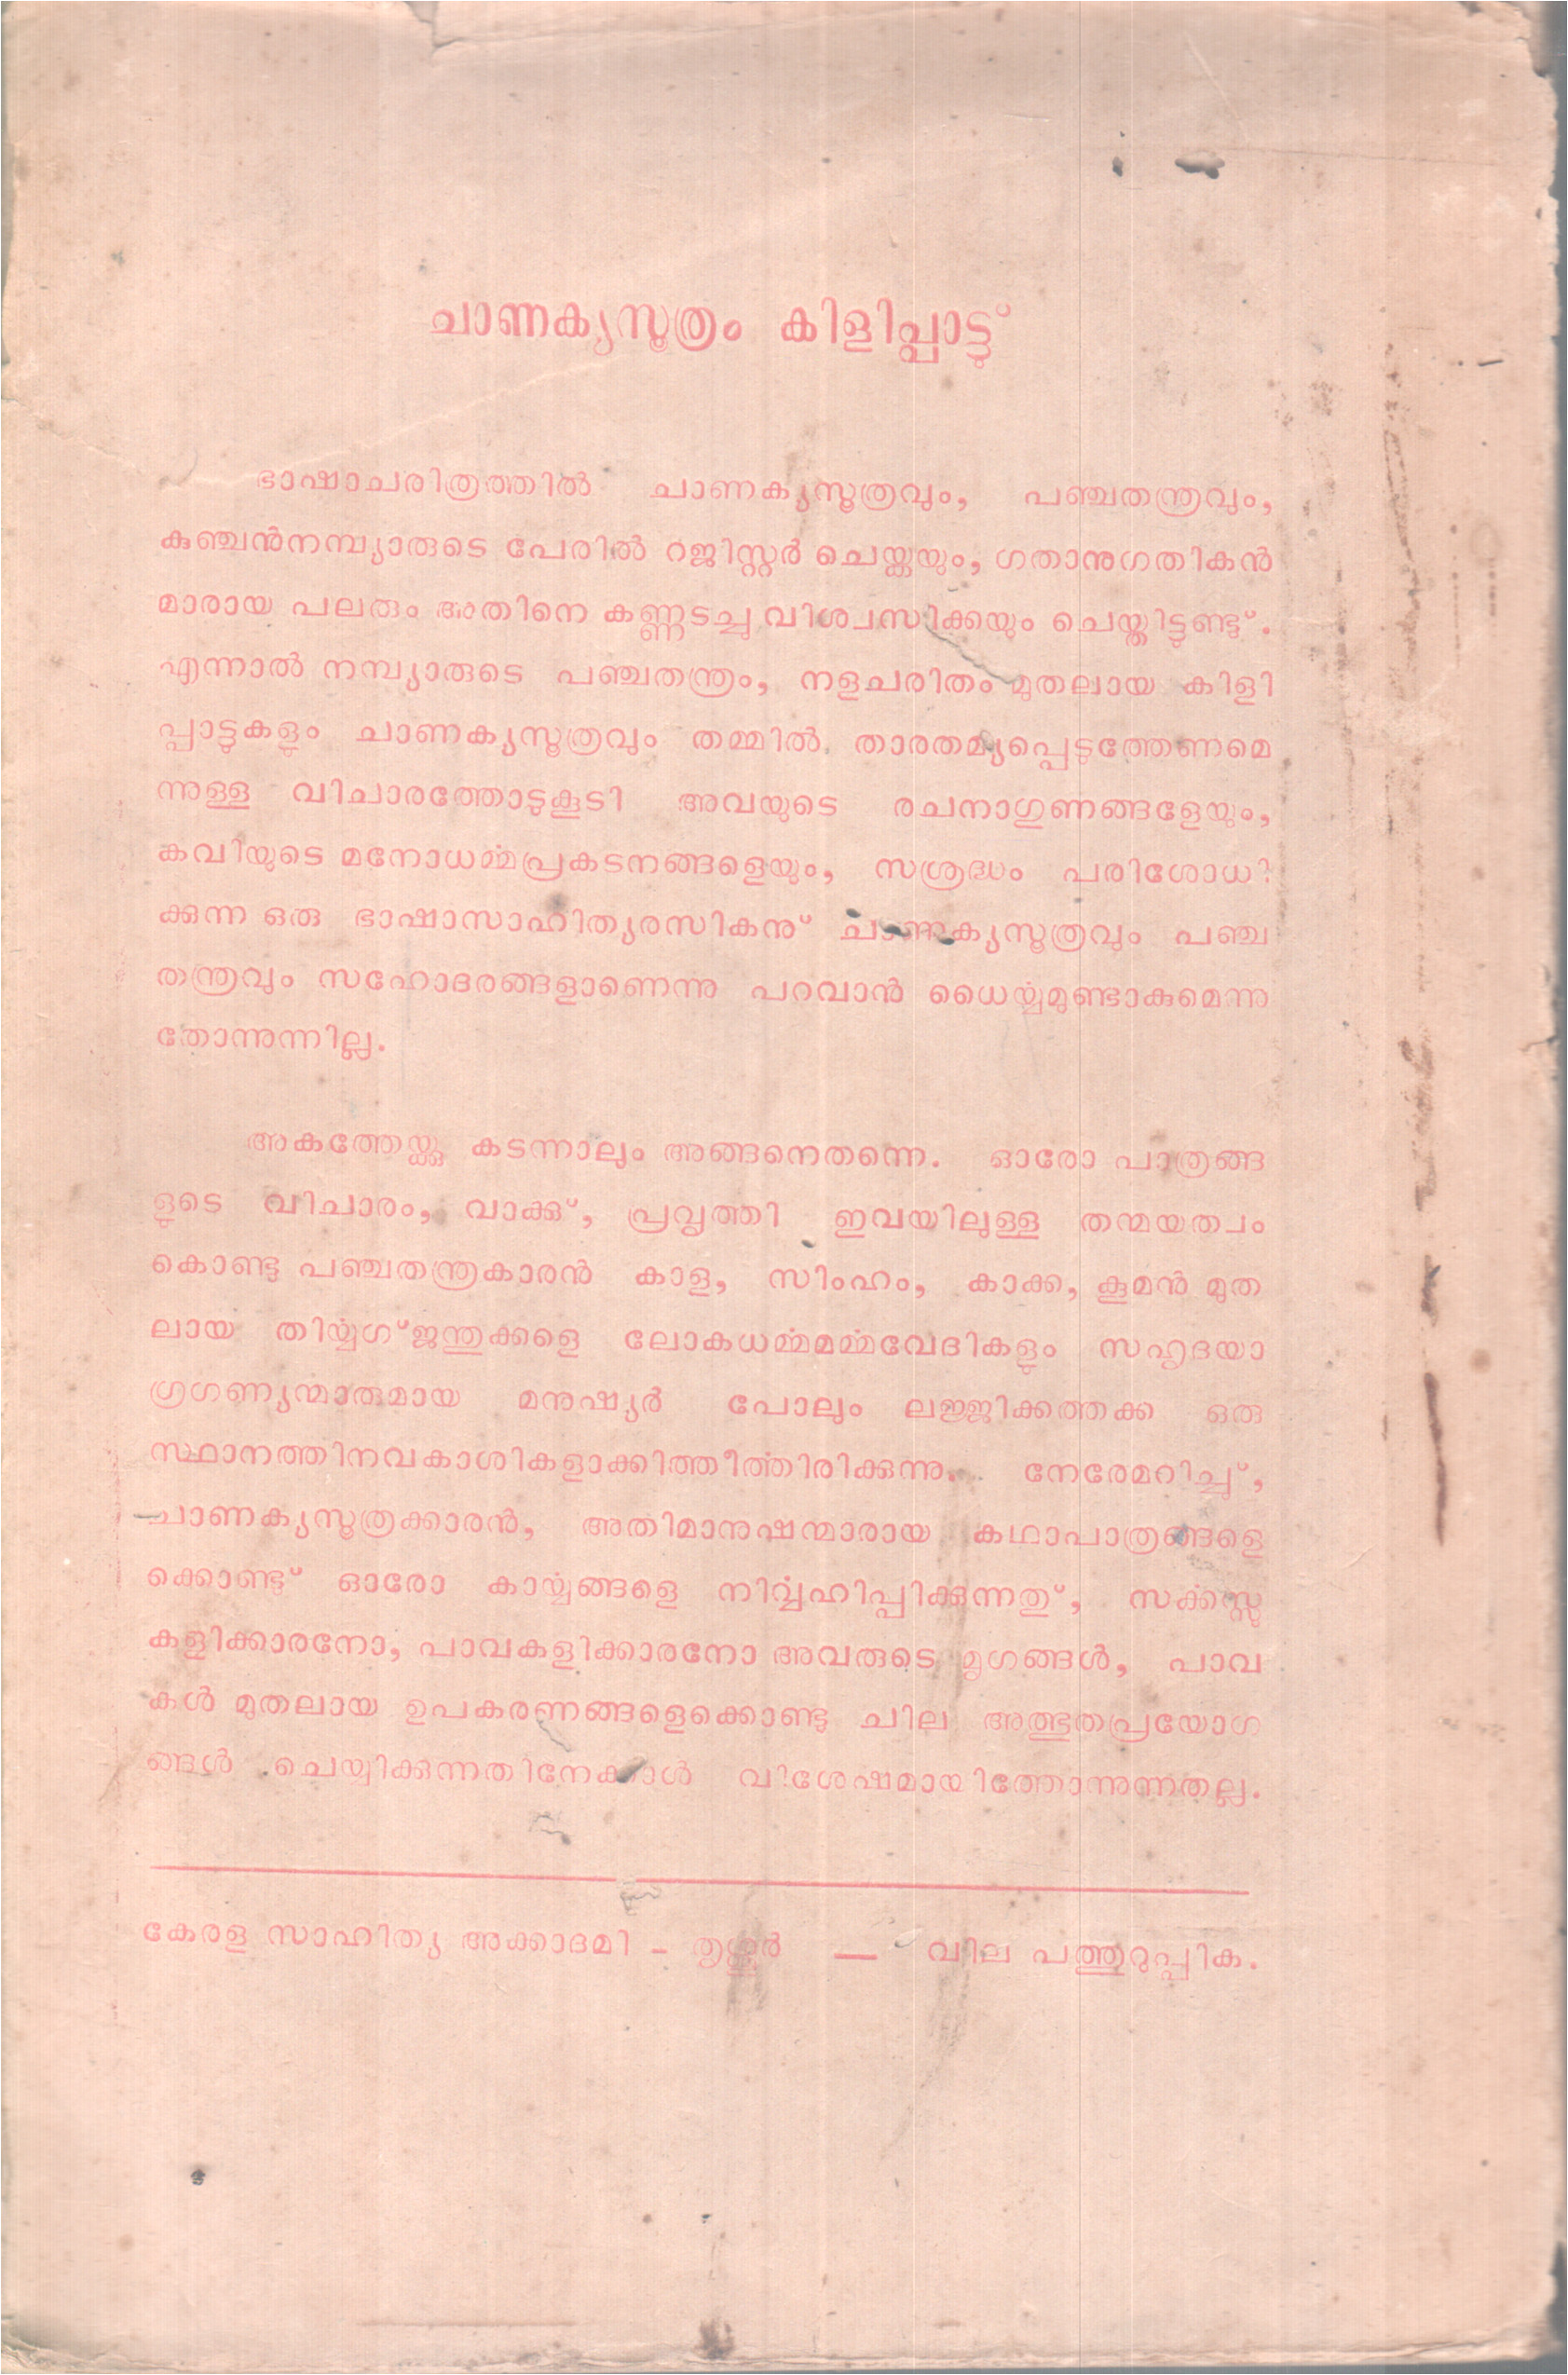 ചാണക്യസൂത്രം കിളിപ്പാട്ട്
ഭാഷാചരിത്രത്തിൽ ചാണക്യസൂത്രവും, പഞ്ചതന്ത്രവും,
കുഞ്ചൻനമ്പ്യാരുടെ പേരിൽ റജിസ്റ്റർ ചെയ്കയും, ഗതാനുഗതികൻ
മാരായ പലരും അതിനെ കണ്ണടച്ചു വിശ്വസിക്കയും ചെയ്തിട്ടുണ്ടു്.
എന്നാൽ നമ്പ്യാരുടെ പഞ്ചതന്ത്രം, നളചരിതം മുതലായ കിളി
പ്പാട്ടുകളും ചാണക്യസൂത്രവും തമ്മിൽ താരതമ്യപ്പെടുത്തേണമെ
ന്നുള്ള വിചാരത്തോടുകൂടി അവയുടെ രചനാഗുണങ്ങളേയും,
കവിയുടെ മനോധൎമ്മപ്രകടനങ്ങളെയും, സശ്രദ്ധം പരിശോധി
ക്കുന്ന ഒരു ഭാഷാസാഹിത്യരസികനു് ചാണക്യസൂത്രവും പഞ്ച
തന്ത്രവും സഹോദരങ്ങളാണെന്നു പറവാൻ ധൈൎയ്യമുണ്ടാകുമെന്നു
തോന്നുന്നില്ല.
അകത്തേയ്ക്കു കടന്നാലും അങ്ങനെതന്നെ. ഓരോ പാത്രങ്ങ
ളുടെ വിചാരം, വാക്കു്, പ്രവൃത്തി ഇവയിലുള്ള തന്മയത്വം
കൊണ്ടു പഞ്ചതന്ത്രകാരൻ കാള, സിംഹം, കാക്ക, കൂമൻ മുത
ലായ തിൎയ്യഗ്ജന്തുക്കളെ ലോകധൎമ്മമൎമ്മവേദികളും സഹൃദയാ
ഗ്രഗണ്യന്മാരുമായ മനുഷ്യർ പോലും ലജ്ജിക്കത്തക്ക ഒരു
സ്ഥാനത്തിനവകാശികളാക്കിത്തീൎത്തിരിക്കുന്നു. നേരേമറിച്ചു്,
ചാണക്യസൂത്രക്കാരൻ, അതിമാനുഷന്മാരായ കഥാപാത്രങ്ങളെ
ക്കൊണ്ടു് ഓരോ കാൎയ്യങ്ങളെ നിൎവ്വഹിപ്പിക്കുന്നതു്, സൎക്കസ്സു
കളിക്കാരനോ, പാവകളിക്കാരനോ അവരുടെ മൃഗങ്ങൾ, പാവ
കൾ മുതലായ ഉപകരണങ്ങളെക്കൊണ്ടു ചില അത്ഭുതപ്രയോഗ
ങ്ങൾ ചെയ്യിക്കുന്നതിനേക്കാൾ വിശേഷമായിത്തോന്നുന്നതല്ല.
കേരള സാഹിത്യ അക്കാദമി - തൃശ്ശൂർ — വില പത്തുറുപ്പിക.